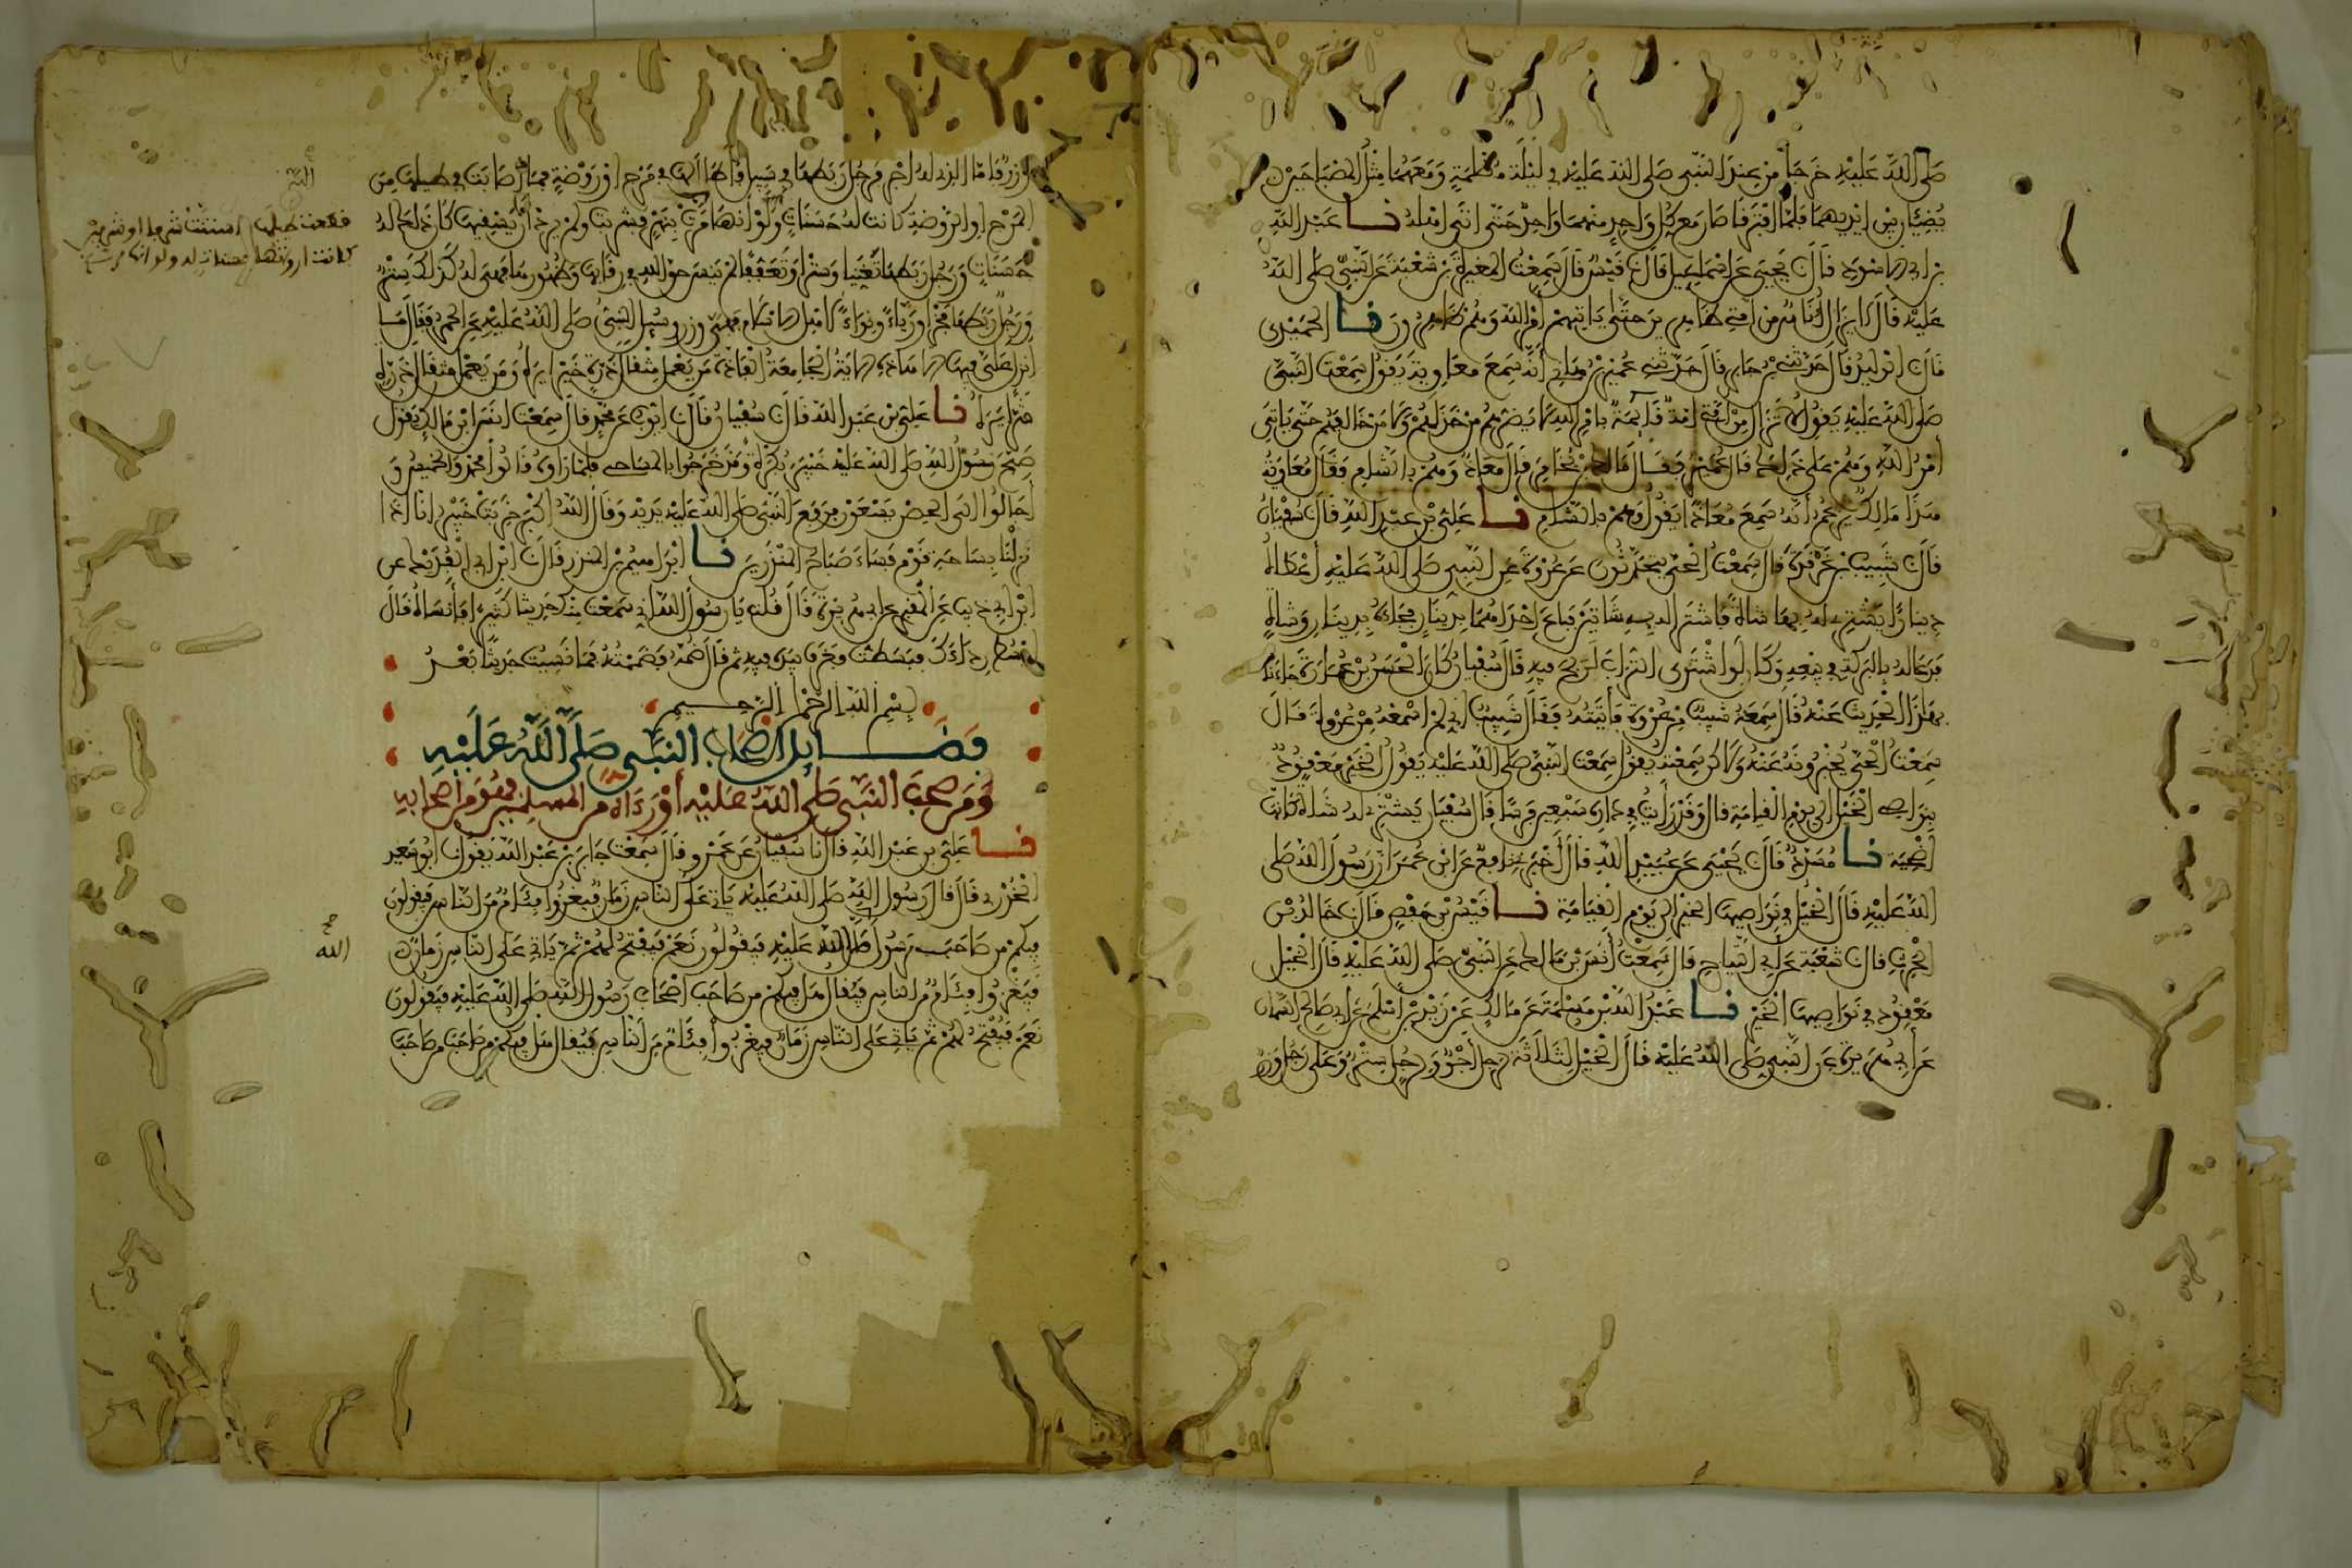 صلى الله عليه خرجا من عند النبي صلى الله عليه في ليلة مظلمة ومعهما مثل المصباحين
يضيئان بين أيديهما فلما افترقا صار مع كل واحد منهما واحد حتى أتى أهله نا عبد الله
بن أبي الأسود قال نا يحيى عن إسماعيل قال نا قيس قال سمعت المغيرة بن شعبة عن النبي صلى الله
عليه قال لا يزال ناس من أمتي ظاهرين حتى يأتيهم أمر الله وهم ظاهرون نا الحميدي
قال نا الوليد قال حدثني ابن جابر قال حدثني عمير بن هانئ أنه سمع معاوية يقول سمعت النبي
صلى الله عليه يقول لا تزال من أمتي أمة قائمة بأمر الله لا يضرهم من خذلهم ولا من خالفهم حتى يأتي
أمر الله وهم على ذلك قال عمير فقال مالك بن يخامر قال معاذ وهم بالشام فقال معاوية
هذا مالك يزعم أنه سمع معاذا يقول وهم بالشام نا علي بن عبد الله قال نا سفيان
قال نا شبيب بن غرقدة قال سمعت الحي يتحدثون عن عروة عن النبي صلى الله عليه أعطاه
دينارا يشتري له بها شاة فاشترى له به شاتين فباع إحداهما بدينار فجاءه بدينار وشاة
فدعا له بالبركة في بيعه وكان لو اشترى التراب لربح فيه قال سفيان كان الحسن بن عمارة جاءنا
بهذا الحديث عنه قال سمعه شبيب من عروة فأتيته فقال شبيب إني لم أسمعه من عروة قال
سمعت الحي يخبرونه عنه ولاكن سمعته يقول سمعت النبي صلى الله عليه يقول الخير معقود
بنواصي الخيل إلى يوم القيامة قال وقد رأيت في داره سبعين فرسا قال سفيان يشتري له شاة كانها
أضحية نا مسدد قال نا يحيى عن عبيد الله قال أخبرني نافع عن ابن عمر أن رسول الله صلى
الله عليه قال الخيل في نواصيها الخير إلى يوم القيامة نا قيس بن حفص قال نا خالد بن
الحرث قال نا شعبة عن أبي التياح قال سمعت أنس بن مالك عن النبي صلى الله عليه قال الخيل
معقود في نواصيها الخير نا عبد الله بن مسلمة عن مالك عن زيد بن أسلم عن أبي صالح السمان
عن أبي هريرة عن النبي صلى الله عليه قال الخيل لثلاثة لرجل أجر ولرجل ستر وعلى رجل وزر
وزر فأما الذي له أجر فرجل ربطها في سبيل الله فأطال لها في مرج أو روضة فما أصابت في طيلها من
المرج أو الروضة كانت له حسنات ولو أنها مرت بنهر فشربت ولم يرد أن يسقيها كان ذلك له
حسنات ورجل ربطها تغنيا وسترا وتعففا لم ينس حق الله في رقابها وظهورها فهي له كذلك ستر
ورجل ربطها فخرا ورياء ونواء لأهل الإسلام فهي وزر وسئل النبي صلى الله عليه عن الحمر فقال ما
أنزل علي فيها إلا هذه الآية الجامعة الفاذة من يعمل مثقال ذرة خيرا يره ومن يعمل مثقال ذرة
شرا يره نا علي بن عبد الله قال نا سفيان قال نا أيوب عن محمد قال سمعت أنس ابن مالك يقول
صبح رسول الله صلى الله عليه خيبر بكرة وقد خرجوا بالمساحي فلما رأوه قالوا محمد والخميس و
أحالوا إلى الحصن يسعون فرفع النبي صلى الله عليه يديه وقال الله أكبر خربت خيبر إنا إذا
نزلنا بساحة قوم فساء صباح المنذرين نا إبراهيم بن المنذر قال نا ابن أبي الفديك عن
ابن أبي ذيب عن المقبري عن أبي هريرة قال قلت يا رسول الله إني سمعت منك حديثا كثيرا فأنساه قال
ابسط رداءك فبسطت فغرف بيده فيه ثم قال ضمه فضممته فما نسيت حديثا بعد
بسم الله الرحمن الرحيم
فضايل أصحاب النبي صلى الله عليه
ومن صحب النبي صلى الله عليه أو رءاه من المسلمين فهو من أصحابه
نا علي بن عبد الله قال نا سفيان عن عمرو قال سمعت جابر بن عبد الله يقول نا أبو سعيد
الخدري قال قال رسول الله صلى الله عليه يأتي على الناس زمان فيغزوا فئام من الناس فيقولون
فيكم من صاحب رسول الله صلى الله عليه فيقولون نعم فيفتح لهم ثم يأتي على الناس زمان
فيغزوا فئام من الناس فيقال هل فيكم من صاحب أصحاب رسول الله صلى الله عليه فيقولون
نعم فيفتح لهم ثم يأتي على الناس زمان فيغزوا فئام من الناس فيقال هل فيكم من صاحب من صاحب
الله
فقطعت طيلها فاستنت شرفا أو شرفين
كانت أرواثها حسنات له ولو أنها مرت
الله